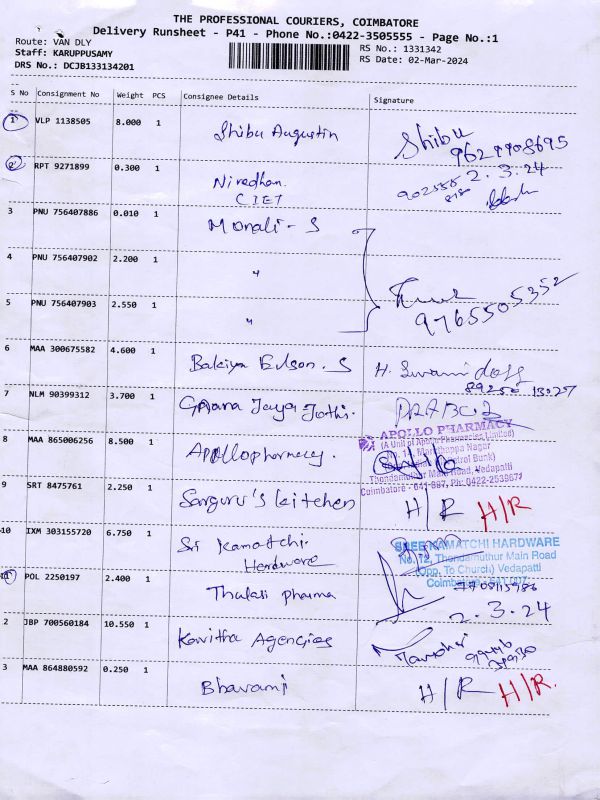 THE PROFESSIONAL COURIERS, COIMBATORE
Delivery Runsheet - P41 - Phone No.:0422-3505555 - Page No.:1
Route: VAN DLY
RS No.: 1331342
Staff: KARUPPUSAMY
RS Date: 02-Mar-2024
DRS No.: DCJB133134201
S No Consignment No Weight PCS Consignee Details Signature
1 VLP 1138505 8.000 1 Shibu Augustin Shibu
2 RPT 9271899 0.300 1 Niredhan. 2.3.24
CIET
3 PNU 756407886 0.010 1 Monali - S
4 PNU 756407902 2.200 1 "
5 PNU 756407903 2.550 1 " 9765505352
6 MAA 300675582 4.600 1 Bakiya Edson. S H. Swami doss
7 NLM 90399312 3.700 1 Gnana Jaya Jothi.
8 MAA 865006256 8.500 1 Apollopharmacy. APOLLO PHARMACY
(A Unit of Apollo Pharmacies Limited)
Thondamuthur Main Road, Vedapatti
Coimbatore - 641 007, Ph: 0422-2538671
9 SRT 8475761 2.250 1 Sarguru's kitchen H/R H/R
10 IXM 303155720 6.750 1 Sri Kamatchi. SREE KAMATCHI HARDWARE
Hardware No. 12, Thondamuthur Main Road
(Opp. To Church) Vedapatti
Coimbatore - 641 007
11 POL 2250197 2.400 1 Thulasi pharma 2.3.24
2 JBP 700560184 10.550 1 Kavitha Agencies
3 MAA 864880592 0.250 1 Bhavami H/R H/R.